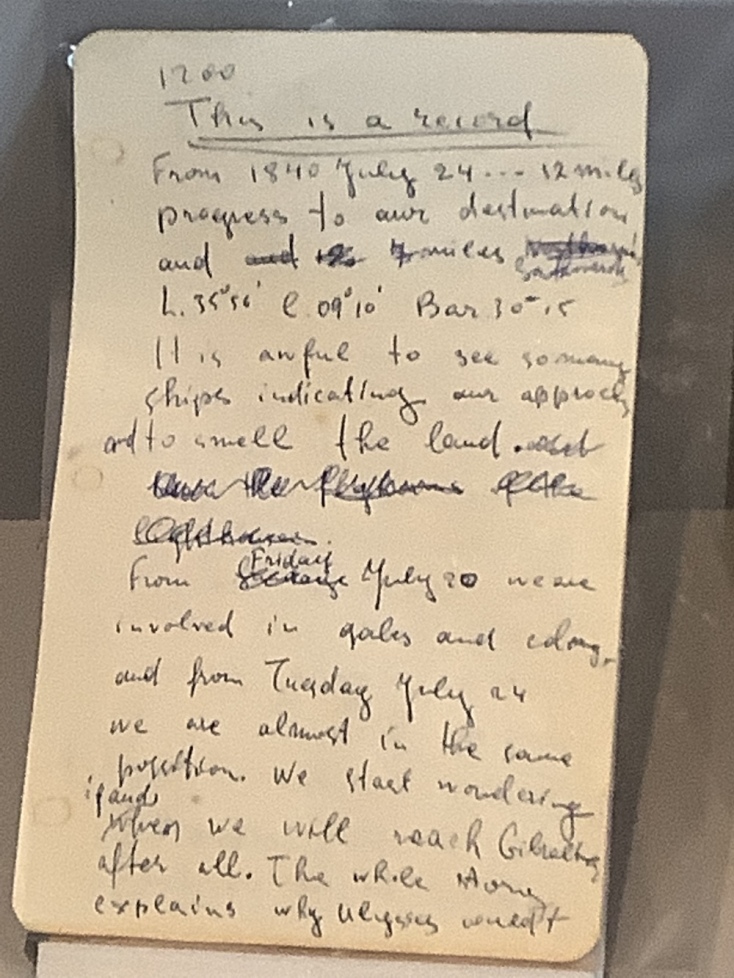 1200
This is a record
From 1840 July 24 --- 12 miles
progress to our destination
and and 12 7 miles
L. 35°56' l. 09°10' Bar 30=15
It is awful to see so many
ships indicating our approch
and to smell the land. and
of the
From Friday July 20 we are
involved in gales and
and from Tuesday July 24
we are almost in the same
position. We start wondering
if and
when we will reach Gibraltar
after all. The whole story
explains why Ulysses